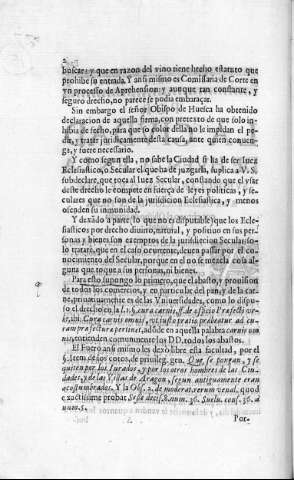 2
buscare: y que en razon del vino tiene hecho estatuto que
prohibe su entrada. Y ansi mismo es Comissaria de Corte en
vn processo de Aprehension: y aunque tan constante, y
seguro drecho, no parece se podia embaraçar.
Sin embargo el señor Obispo de Huesca ha obtenido
declaracion de aquella firma, con pretexto de que solo in-
hibia de fecho, para que so color della no le impidan el pe-
dir, y tratar juridicamente desta causa, ante quien conuen-
ga, y fuere necessario.
Y como segun ella, no sabe la Ciudad si ha de ser Iuez
Eclesiastico, o Secular el que ha de juzgarla, suplica a V. S.
subdeclare, que toca al Iuez Secular, constando que el vsar
deste drecho le compete en fuerça de leyes politicas, y se-
culares que no son de la jurisdicion Eclesiastica, y menos
ofenden su inmunidad.
Y dexado a parte (lo que no es disputable) que los Ecle-
siasticos por drecho diuino, natural, y positiuo en sus per-
sonas, y bienes, son exemptos de la jurisdicion Secular: so-
lo tratarè, que en el caso ocurrente, deuen passar por el co-
nocimiento del Secular, porque en el no se mezcla cosa al-
guna que toque a sus personas, ni bienes.
Para esto supongo lo primero, que el abasto, y prouision
de todos los comercios, y en particular del pan, y de la car-
ne, priuatiuamente es de las Vniuersidades, como lo dispu-
so el drecho en la l. 1. §. cura carnis, ff. de officio Præfecti vr-
bis, ibi: Cura carnis omnis, vt iusto pretio prebeatur ad cu-
ram præfecturæ pertinet, adonde en aquella palabra carnis om-
nis, entienden comunmente los DD. todos los abastos.
El Fuero ansi mismo les dexò libre esta facultad, por el
§. Item de los cotos, de priuileg. gen. Que se pongan, y se
quiten por los Iurados, y por los otros hombres de las Ciu-
dades, y de las Villas de Aragon, segun antiguamente eran
acostumbrados. Y la Obs. 2. de moderat. rerum venal. quod
exactissimè probat Sesse decis. 8. num. 36. Suelu. cons. 36. a
num. 5.
Por-